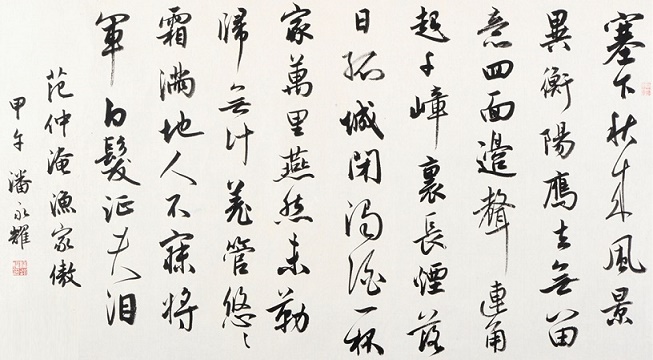 塞下秋来風景
異衡陽鴈去無留
意四面邊聲連角
起千嶂裏長煙落
日孤城閉濁酒一杯
家萬里燕然未勒
歸無計羌管悠〻
霜滿地人不寐將
軍白髮征夫泪
范仲淹漁家傲
甲午 潘永耀